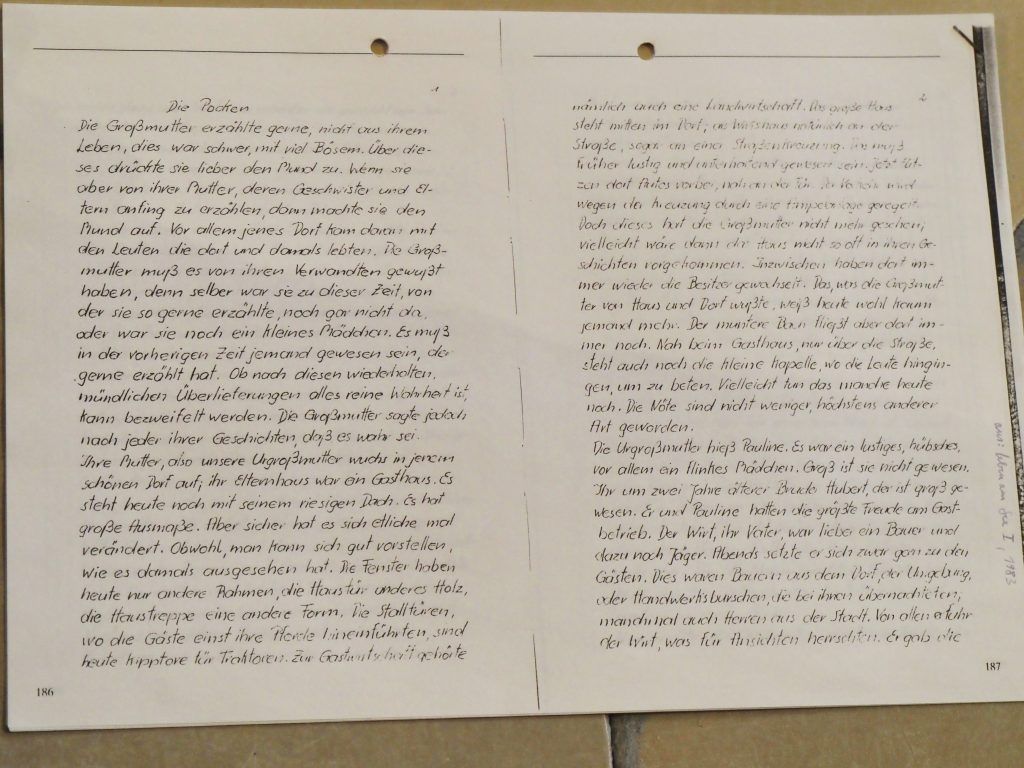 1
Die Pocken
Die Großmutter erzählte gerne, nicht aus ihrem
Leben, dies war schwer, mit viel Bösem. Über die-
ses drückte sie lieber den Mund zu. Wenn sie
aber von ihrer Mutter, deren Geschwister und El-
tern anfing zu erzählen, dann machte sie den
Mund auf. Vor allem jenes Dorf kam daran mit
den Leuten die dort und damals lebten. Die Groß-
mutter muß es von ihren Verwandten gewußt
haben, denn selber war sie zu dieser Zeit, von
der sie so gerne erzählte, noch gar nicht da,
oder war sie noch ein kleines Mädchen. Es muß
in der vorherigen Zeit jemand gewesen sein, der
gerne erzählt hat. Ob nach diesen wiederholten,
mündlichen Überlieferungen alles reine Wahrheit ist,
kann bezweifelt werden. Die Großmutter sagte jedoch
nach jeder ihrer Geschichten, daß es wahr sei.
Ihre Mutter, also unsere Urgroßmutter wuchs in jenem
schönen Dorf auf; ihr Elternhaus war ein Gasthaus. Es
steht heute noch mit seinem riesigen Dach. Es hat
große Ausmaße. Aber sicher hat es sich etliche mal
verändert. Obwohl, man kann sich gut vorstellen,
wie es damals ausgesehen hat. Die Fenster haben
heute nur andere Rahmen, die Haustür anderes Holz,
die Haustreppe eine andere Form. Die Stalltüren,
wo die Gäste einst ihre Pferde hineinführten, sind
heute Kipptore für Traktoren. Zur Gastwirtschaft gehörte
186
2
nämlich auch eine Landwirtschaft. Das große Haus
steht mitten im Dorf; als Wirtshaus natürlich an der
Straße, sogar an einer Straßenkreuzung. Es muß
früher lustig und unterhaltend gewesen sein. Jetzt flit-
zen dort Autos vorbei, nah an der Tür. Der Verkehr wird
wegen der Kreuzung durch eine Ampelanlage geregelt.
Doch dieses hat die Großmutter nicht mehr gesehen;
vielleicht wäre dann das Haus nicht so oft in ihren Ge-
schichten vorgekommen. Inzwischen haben dort im-
mer wieder die Besitzer gewechselt. Das, was die Großmut-
ter von Haus und Dorf wußte, weiß heute wohl kaum
jemand mehr. Der muntere Bach fließt aber dort im-
mer noch. Nah beim Gasthaus, nur über die Straße,
steht auch noch die kleine Kapelle, wo die Leute hingin-
gen, um zu beten. Vielleicht tun das manche heute
noch. Die Nöte sind nicht weniger, höchstens anderer
Art geworden.
Die Urgroßmutter hieß Pauline. Es war ein lustiges, hübsches,
vor allem ein flinkes Mädchen. Groß ist sie nicht gewesen.
Ihr um zwei Jahre älterer Bruder Hubert, der ist groß ge-
wesen. Er und Pauline hatten die größte Freude am Gast-
betrieb. Der Wirt, ihr Vater, war lieber ein Bauer und
dazu noch Jäger. Abends setzte er sich zwar gern zu den
Gästen. Dies waren Bauern aus dem Dorf, der Umgebung,
oder Handwerksburschen, die bei ihnen übernachteten;
manchmal auch Herren aus der Stadt. Von allen erfuhr
der Wirt, was für Ansichten herrschten. Er gab die
187
I, 1983